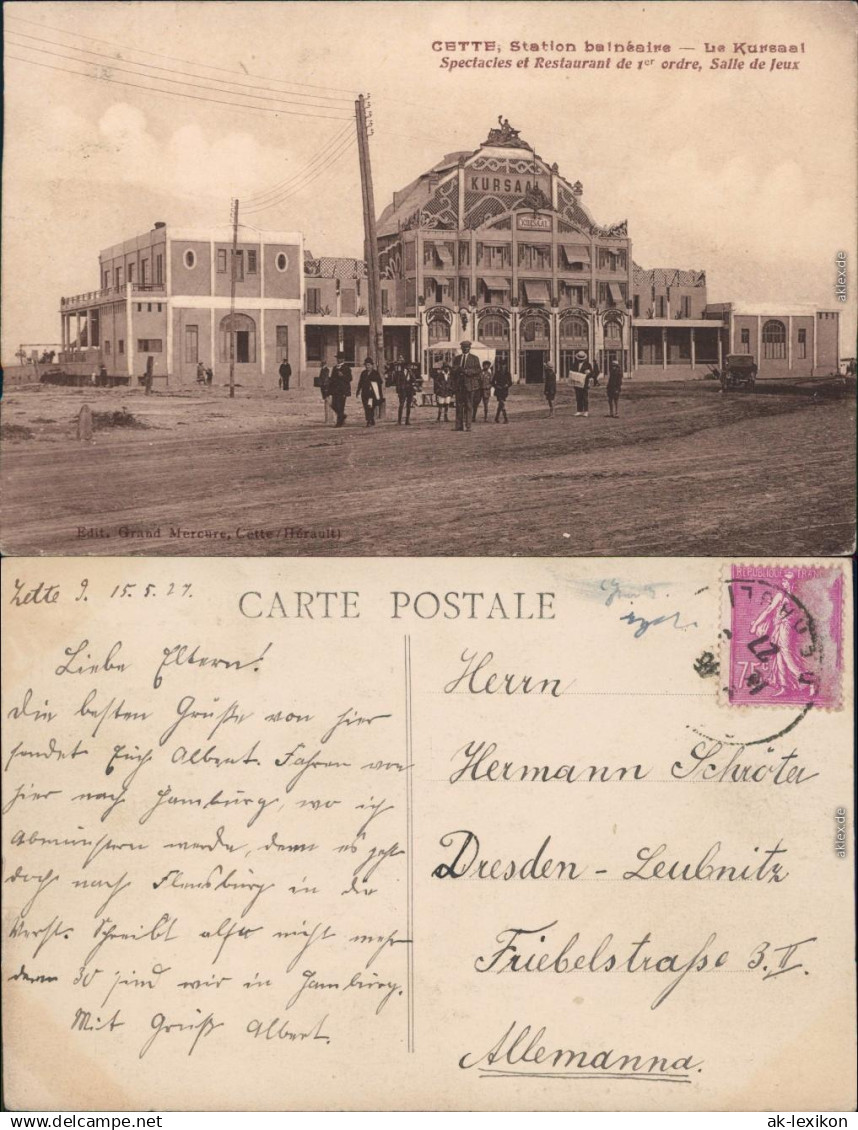 CETTE, Station balnéaire — Le Kursaal
Spectacles et Restaurant de 1er ordre, Salle de Jeux
KURSAAL
Edit. Grand Mercure, Cette (Hérault)
aklex.de
Zette 9. 15.5.27.
CARTE POSTALE
REPUBLIQUE FRANC
75c
27
Liebe Eltern!
Die besten Grüße von hier
sendet Euch Albert. Fahren von
hier nach Hamburg, wo ich
Abmustern werde, denn es geht
doch nach Flensburg in die
Werft. Schreibt also nicht mehr
denn 30 sind wir in Hamburg.
Mit Gruß Albert.
Herrn
Hermann Schröter
Dresden - Leubnitz
Friebelstrasse 3. II.
Allemanna.
aklex.de
ak-lexikon.de
ak-lexikon